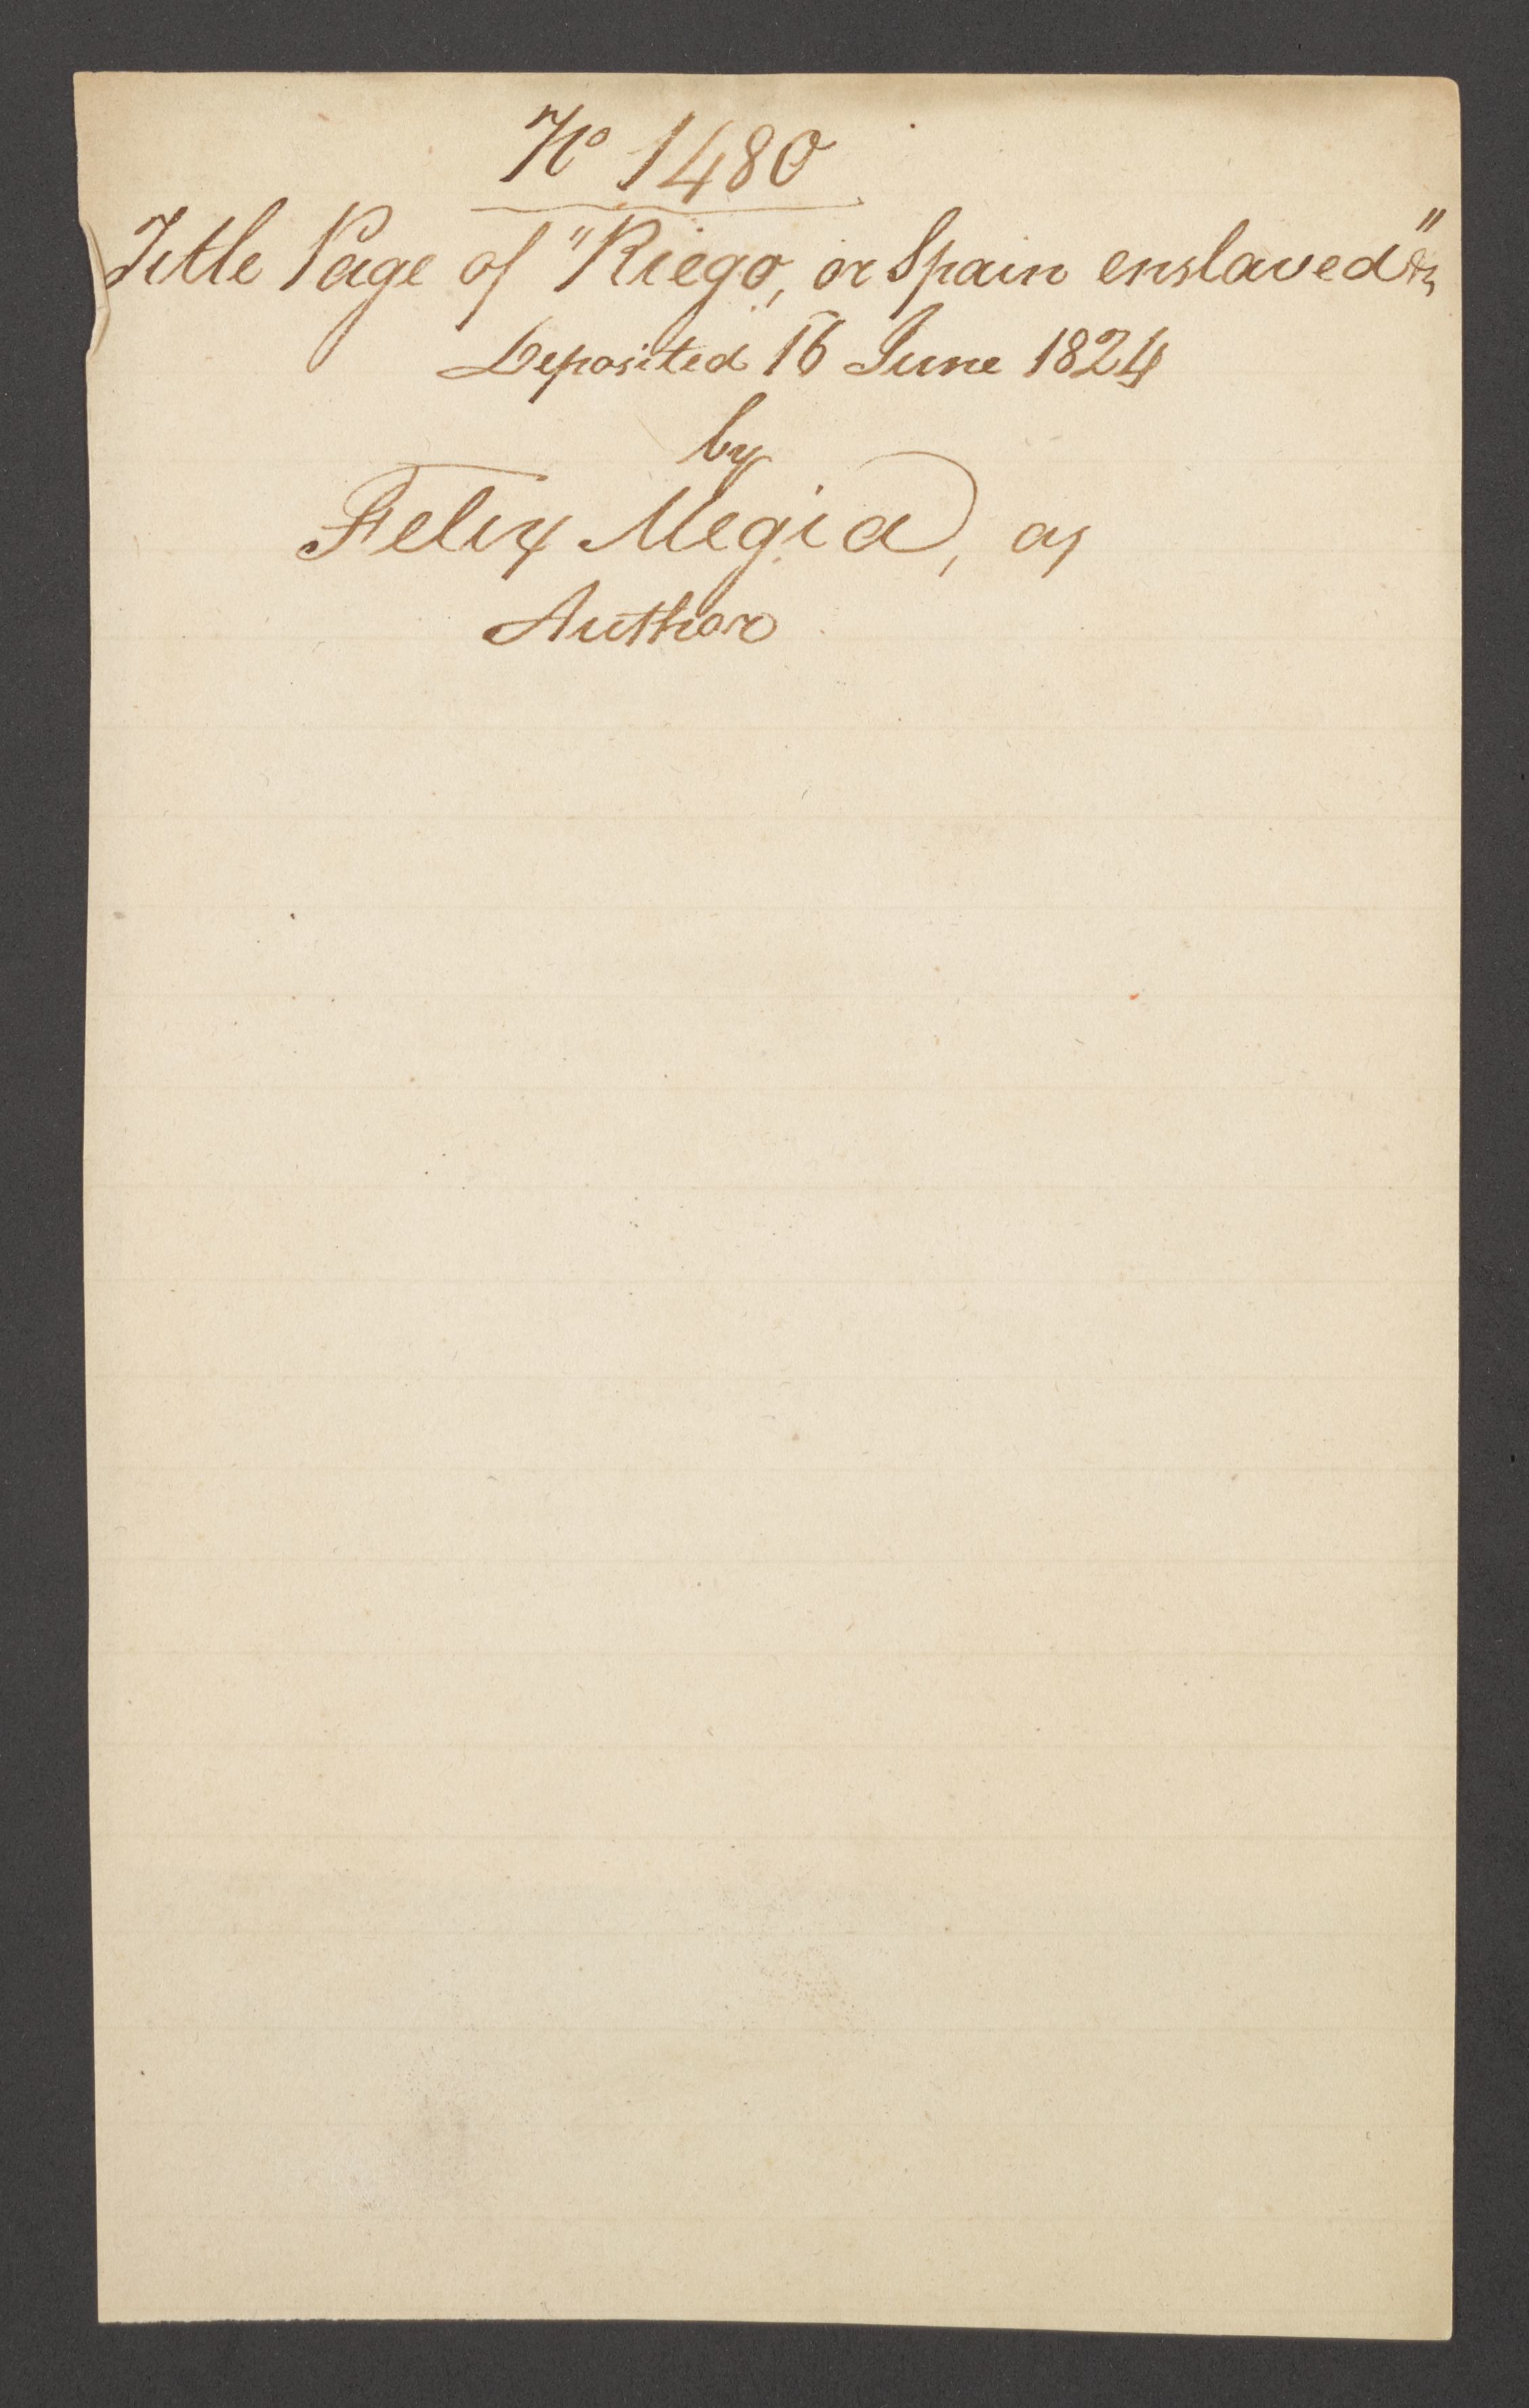 No 1480
Title Page of "Riego, or Spain enslaved" &c
Deposited 16 June 1824
by
Felix Megia, as
Author